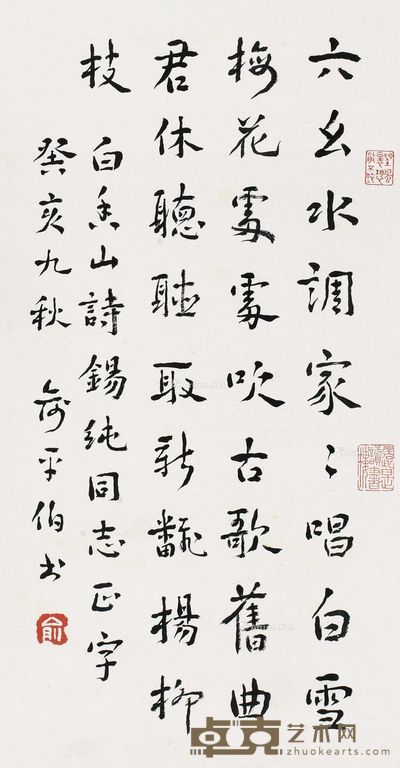 六幺水調家〻唱白雪
梅花處處吹古歌舊曲
君休聽聽取新翻楊柳
枝
白香山詩錫純同志正字
癸亥九秋 俞平伯书
俞
卓克艺术网
zhuokearts.com